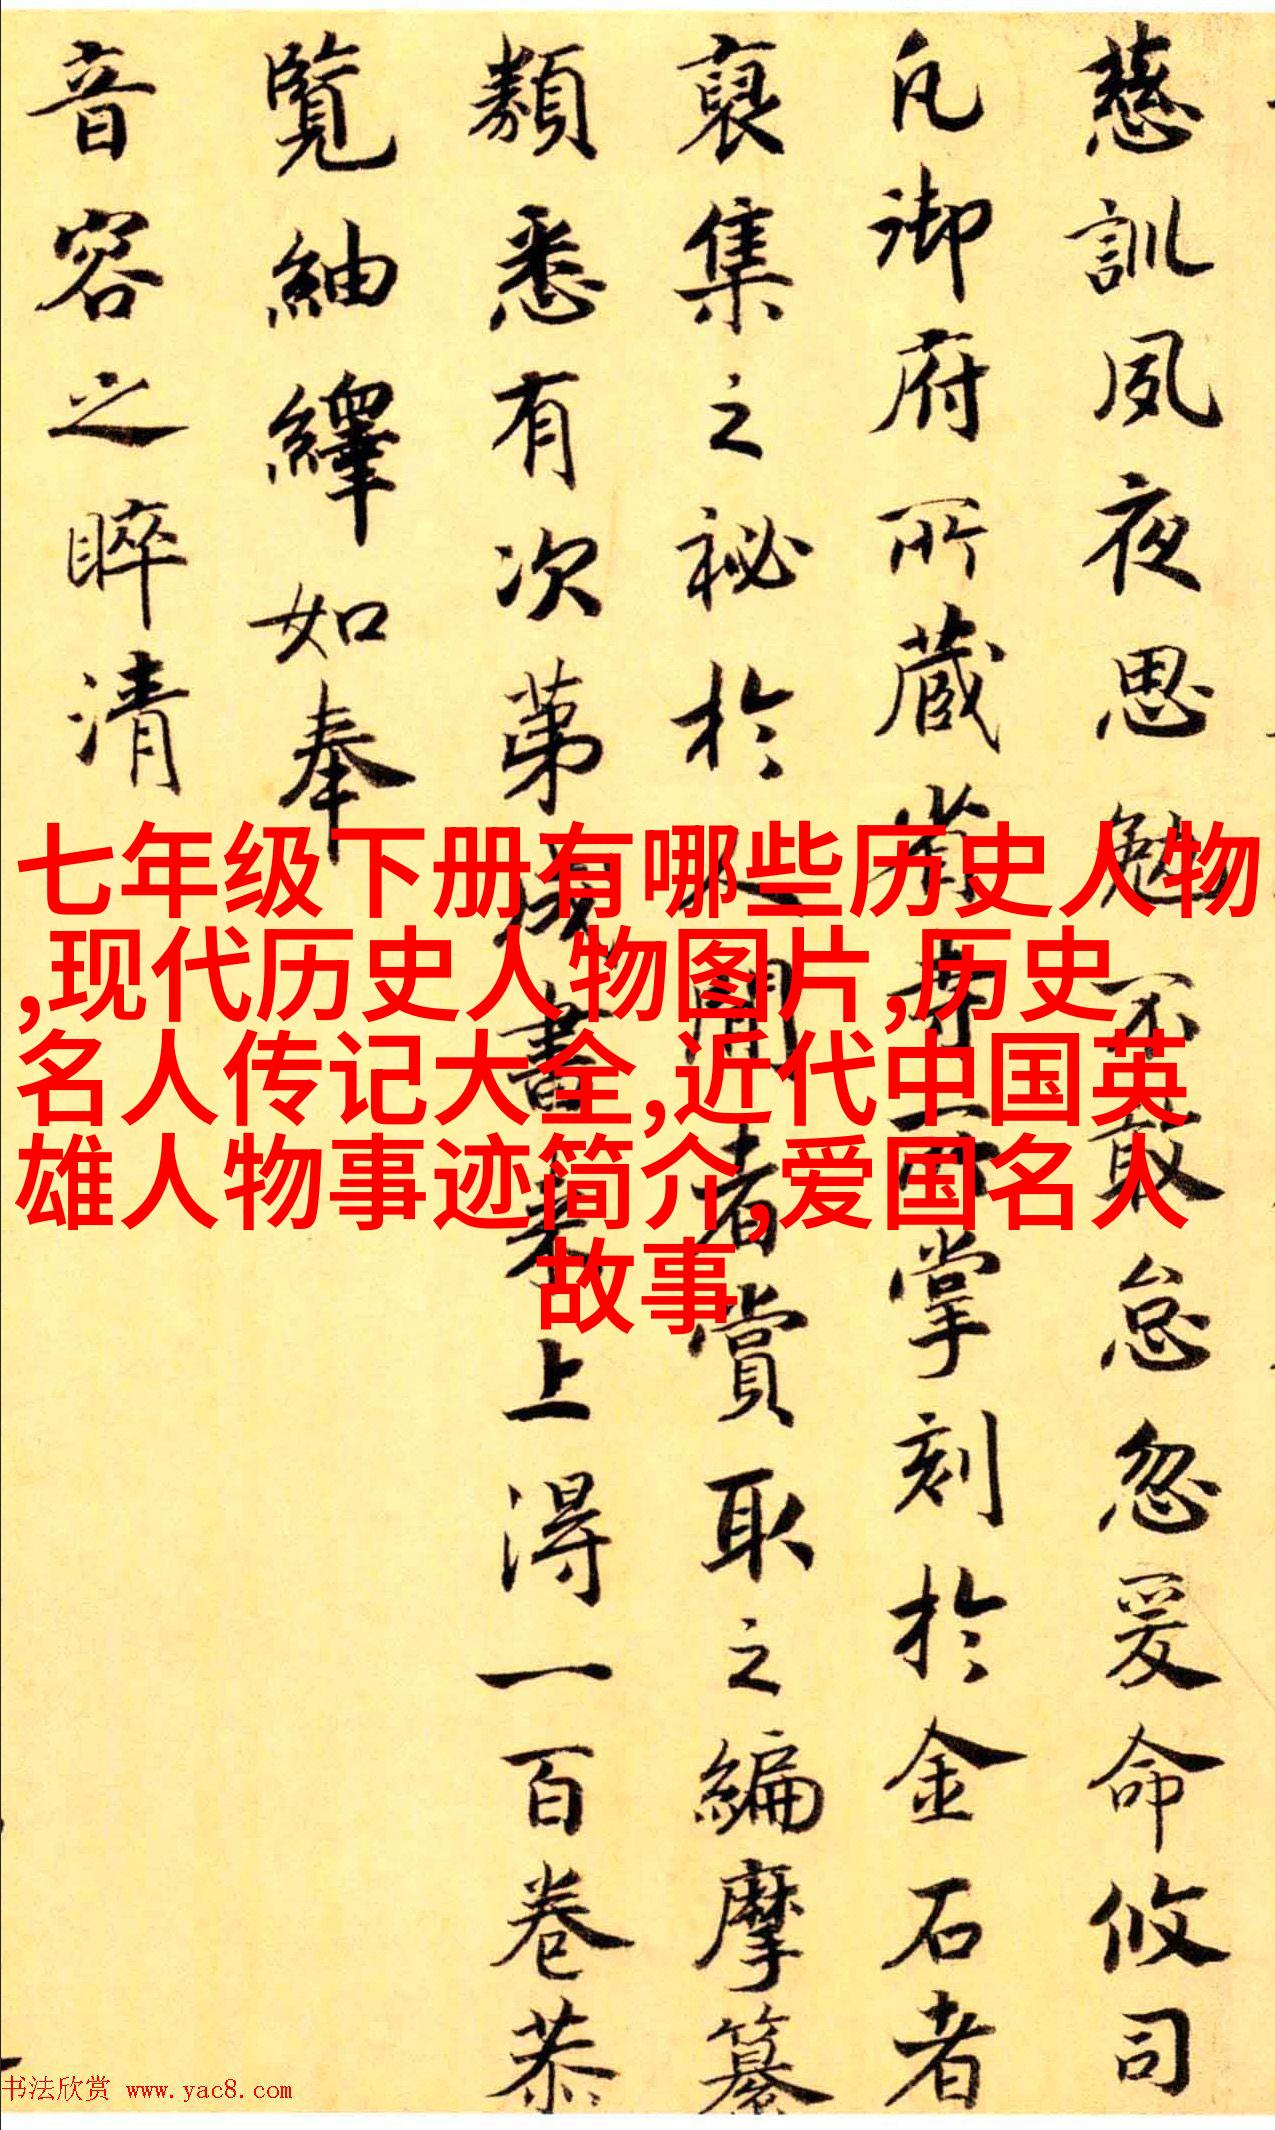 慈訓夙夜思勉不敢怠忽爰命攸司
凡御府所藏掌刻於金石者
裒集之祕於者賞取之編摩纂
類悉有次第成書來上得一百卷恭
覽紬繹如奉
音容之睟清
七年级下册有哪些历史人物
,现代历史人物图片,历史
名人传记大全,近代中国英
雄人物事迹简介,爱国名人
故事
书法欣赏 www.yac8.com